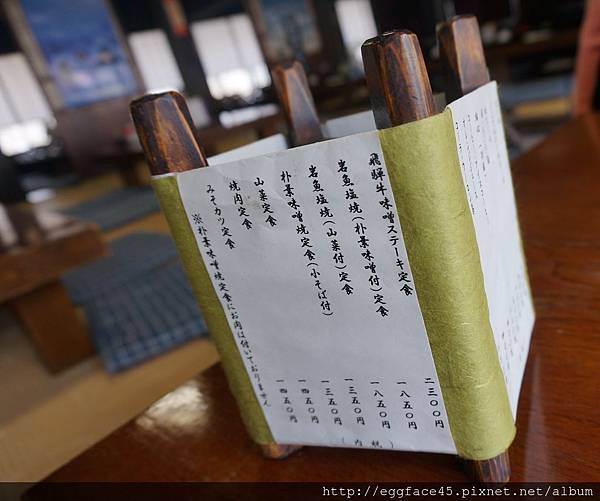 飛騨牛味噌ステーキ定食 二三〇〇円
岩魚塩焼(朴葉味噌付)定食 一八五〇円
岩魚塩焼(山菜付)定食 一八五〇円
朴葉味噌焼定食(小そば付) 一三五〇円
山菜定食 一三五〇円
焼肉定食 一四五〇円
みそカツ定食 一四五〇円
※朴葉味噌焼定食にお肉は付いておりません
(内税)
http://eggface45.pixnet.net/album